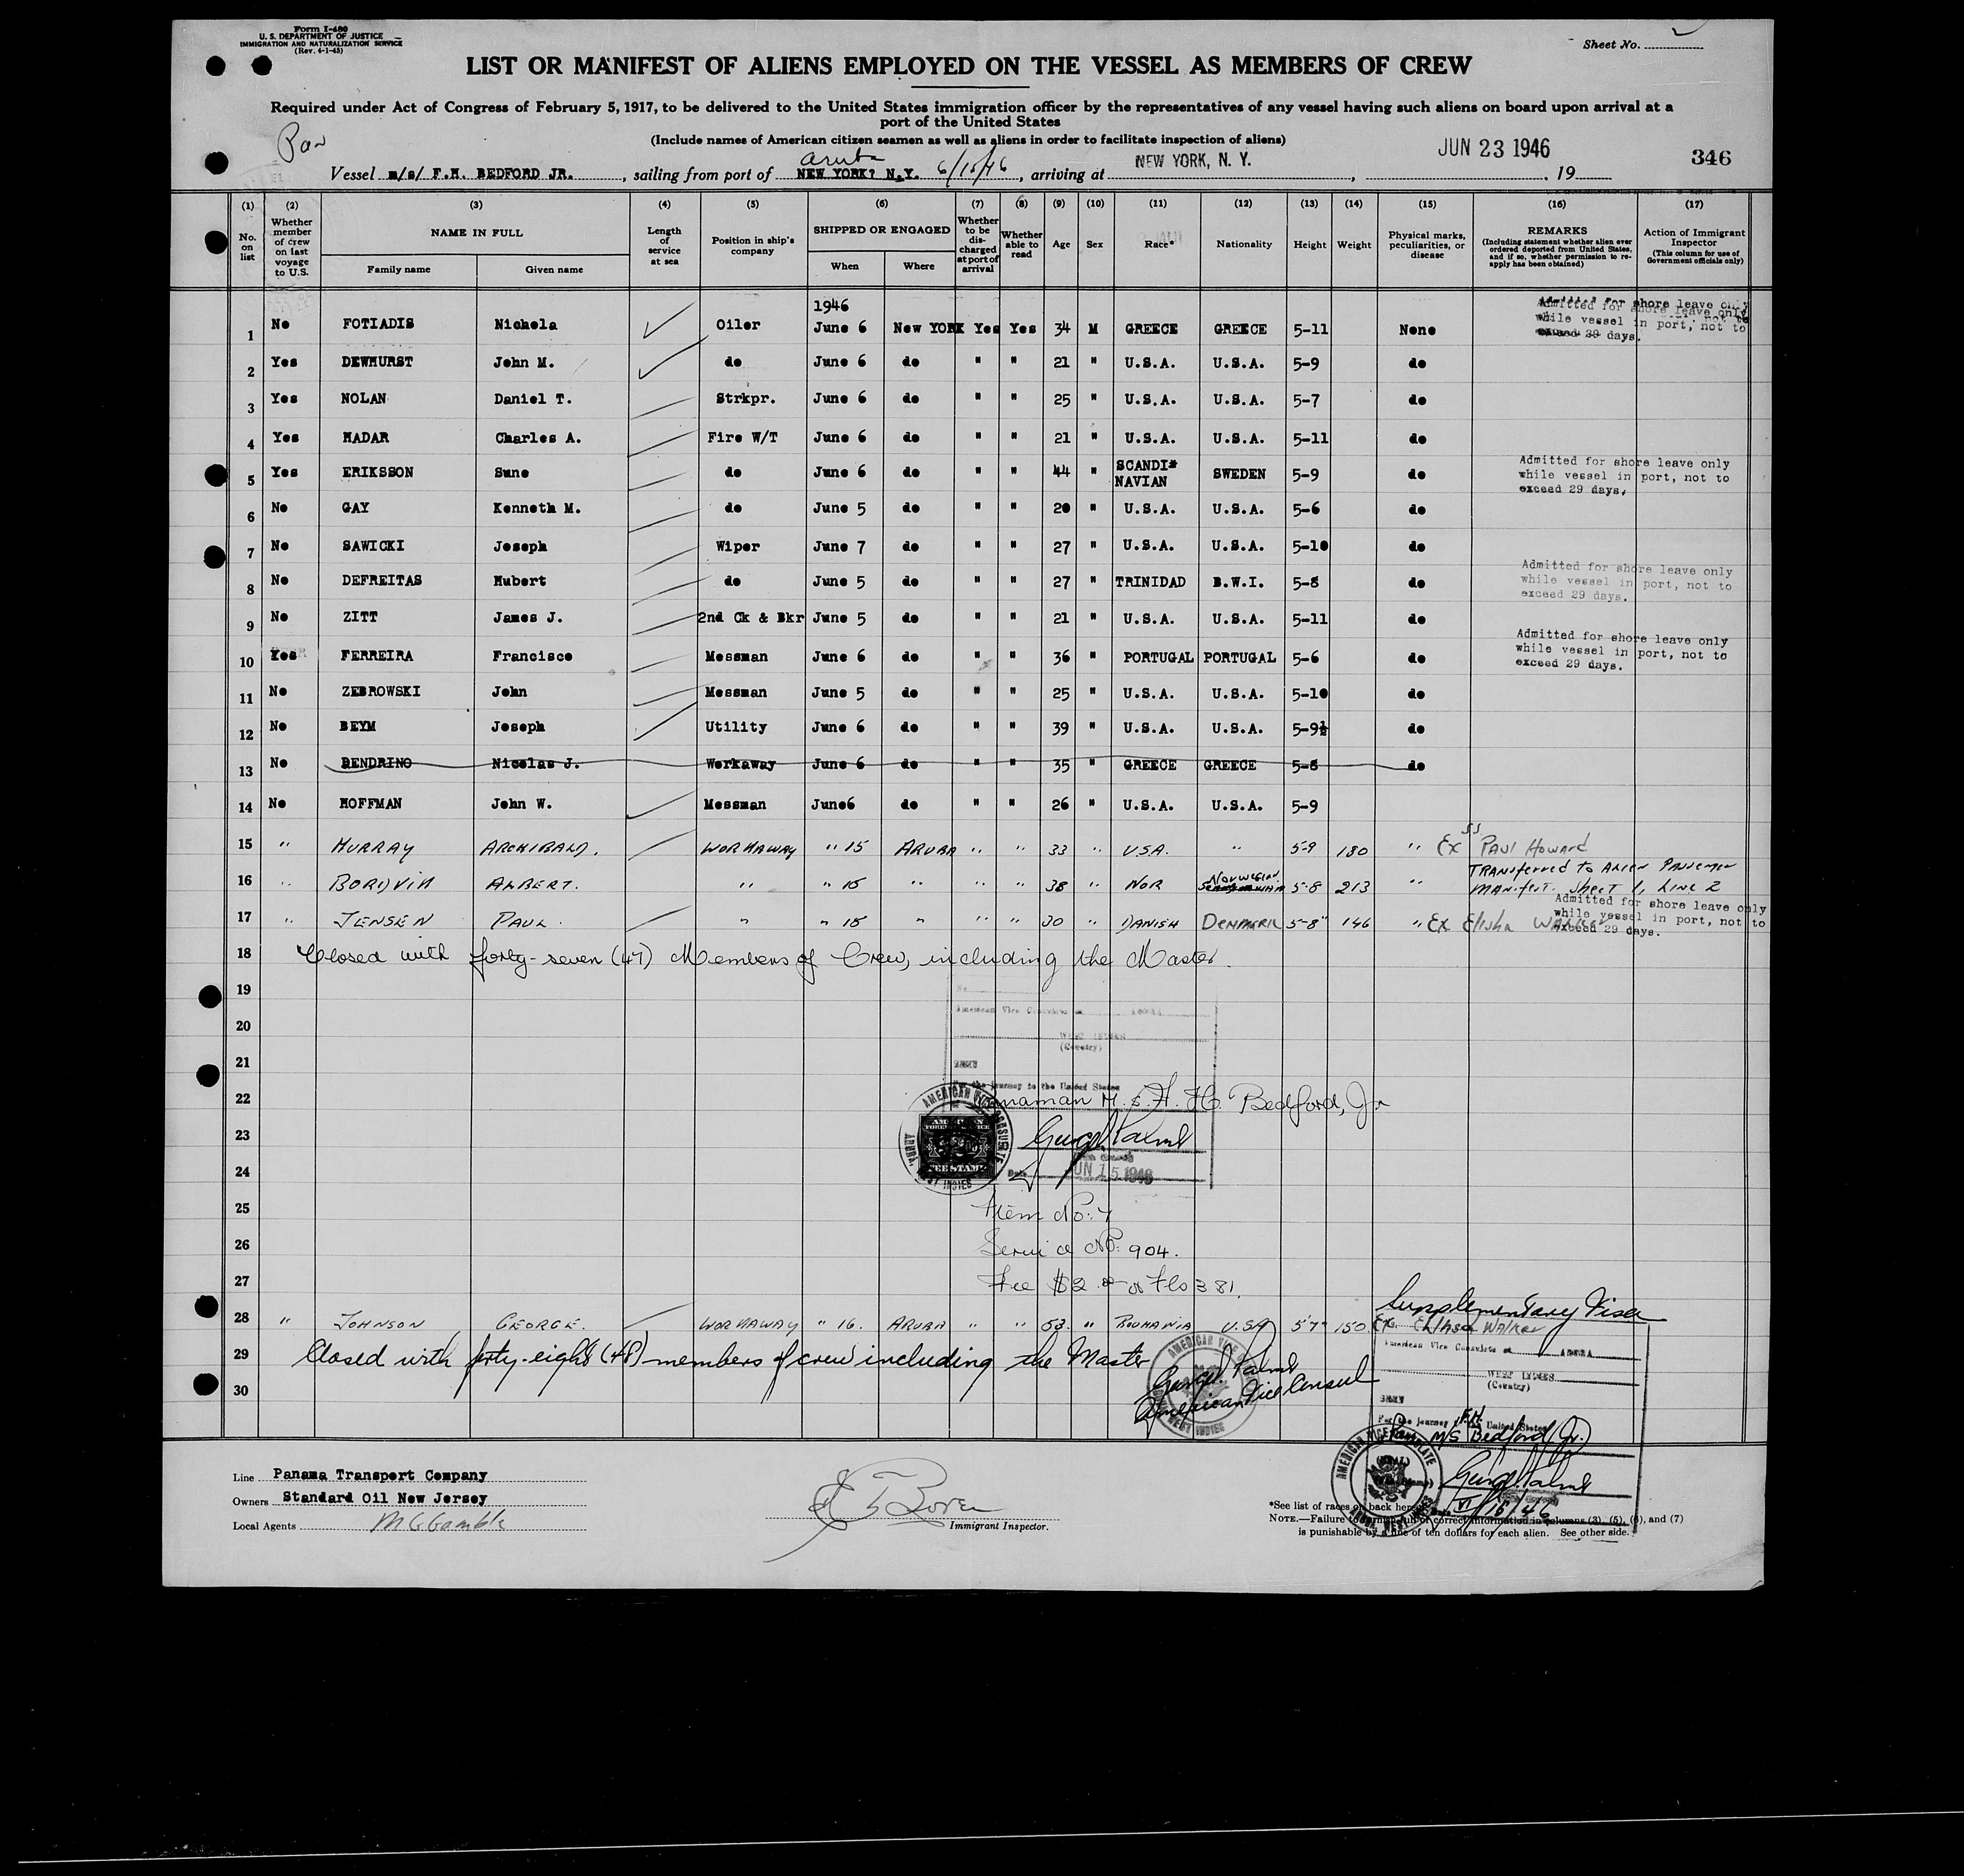 Form I-480
U. S. DEPARTMENT OF JUSTICE
IMMIGRATION AND NATURALIZATION SERVICE
(Rev. 4-1-45)
Sheet No. 2
LIST OR MANIFEST OF ALIENS EMPLOYED ON THE VESSEL AS MEMBERS OF CREW
Required under Act of Congress of February 5, 1917, to be delivered to the United States immigration officer by the representatives of any vessel having such aliens on board upon arrival at a
port of the United States
(Include names of American citizen seamen as well as aliens in order to facilitate inspection of aliens)
Pan
Aruba
JUN 23 1946
346
Vessel m/s/ F.H. BEDFORD JR. , sailing from port of NEW YORK? N.Y. 6/15/46 , arriving at NEW YORK, N. Y. , 19
(1) (2) (3) (4) (5) (6) (7) (8) (9) (10) (11) (12) (13) (14) (15) (16) (17)
No. on list
Whether member of crew on last voyage to U.S.
NAME IN FULL
Family name Given name
Length of service at sea
Position in ship's company
SHIPPED OR ENGAGED
When Where
Whether to be discharged at port of arrival
Whether able to read
Age
Sex
Race*
Nationality
Height
Weight
Physical marks, peculiarities, or disease
REMARKS
(Including statement whether alien ever ordered deported from United States, and if so, whether permission to reapply has been obtained)
Action of Immigrant Inspector
(This column for use of Government officials only)
1946
1 No FOTIADIS Nichola Oiler June 6 New YORK Yes Yes 34 M GREECE GREECE 5-11 None
Admitted for shore leave only
while vessel in port, not to
exceed 29 days.
2 Yes DEWHURST John M. do June 6 do " " 21 " U.S.A. U.S.A. 5-9 do
3 Yes NOLAN Daniel T. Strkpr. June 6 do " " 25 " U.S.A. U.S.A. 5-7 do
4 Yes MADAR Charles A. Fire W/T June 6 do " " 21 " U.S.A. U.S.A. 5-11 do
5 Yes ERIKSSON Sune do June 6 do " " 44 " SCANDI* NAVIAN SWEDEN 5-9 do
Admitted for shore leave only
while vessel in port, not to
exceed 29 days.
6 No GAY Kenneth M. do June 5 do " " 20 " U.S.A. U.S.A. 5-6 do
7 No SAWICKI Joseph Wiper June 7 do " " 27 " U.S.A. U.S.A. 5-10 do
8 No DEFREITAS Hubert do June 5 do " " 27 " TRINIDAD B.W.I. 5-8 do
Admitted for shore leave only
while vessel in port, not to
exceed 29 days.
9 No ZITT James J. 2nd Ck & Bkr June 5 do " " 21 " U.S.A. U.S.A. 5-11 do
10 Yes FERREIRA Francisco Messman June 6 do " " 36 " PORTUGAL PORTUGAL 5-6 do
Admitted for shore leave only
while vessel in port, not to
exceed 29 days.
11 No ZEBROWSKI John Messman June 5 do " " 25 " U.S.A. U.S.A. 5-10 do
12 No BEYM Joseph Utility June 6 do " " 39 " U.S.A. U.S.A. 5-9½ do
13 No DENDRINO Nicolas J. Workaway June 6 do " " 35 " GREECE GREECE 5-8 do
14 No HOFFMAN John W. Messman June6 do " " 26 " U.S.A. U.S.A. 5-9 do
15 " MURRAY ARCHIBALD. WORKAWAY " 15 ARUBA " " 33 " U.S.A. " 5-9 180 " Ex SS PAUL Howard
16 " ALBERT. " " 15 " " " 38 " NOR Norwegian 5-8 213 " TRANSferred to Alien Passenger
MANifest. Sheet 1, LINE 2
17 " JENSEN PAUL. " " 15 " " " 30 " DANISH DENMARK 5-8" 146 " Ex Elisha WALKER
Admitted for shore leave only
while vessel in port, not to
exceed 29 days.
18 Closed with forty-seven (47) Members of Crew, including the Master.
19
No.
American Vice Consulate at ARUBA
20
WEST INDIES
(Country)
21
SEEN
For the journey to the United States
22 M.S. F. H. Bedford, Jr
AMERICAN VICE CONSULATE
ARUBA, WEST INDIES
AMERICAN FOREIGN SERVICE
FEE STAMP
23 George Palmer
24 Date JUN 15 1946
25 Item No. 7
26 Service No. 904.
27 Fee $2.00 or Fls 3.81.
Supplementary Visa
28 " JOHNSON GEORGE. WORKAWAY " 16. ARUBA " " 53. " ROUMANIA U.S.A 5'7" 150 Ex. Elisha Walker
29 Closed with forty-eight (48) members of crew including the Master
American Vice Consulate at ARUBA
George Palmer
WEST INDIES
(Country)
30 American Vice Consul
SEEN
For the journey to the United States
M/S F.H. Bedford, Jr.
AMERICAN VICE CONSULATE
George Palmer
VI/16/46
Line Panama Transport Company
Owners Standard Oil New Jersey
Local Agents McGamble
Immigrant Inspector.
*See list of races on back hereof.
NOTE.—Failure to furnish full or correct information in columns (3), (5), (6), and (7)
is punishable by a fine of ten dollars for each alien. See other side.